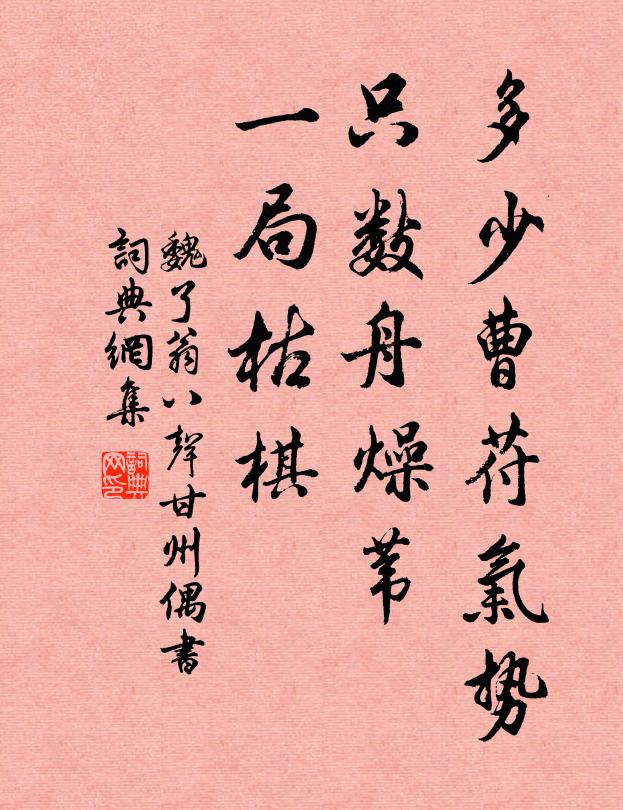 多少曹苻氣勢
只數舟燥苇
一局枯棋
魏了翁八聲甘州偶書
詞典網集
詞典网印